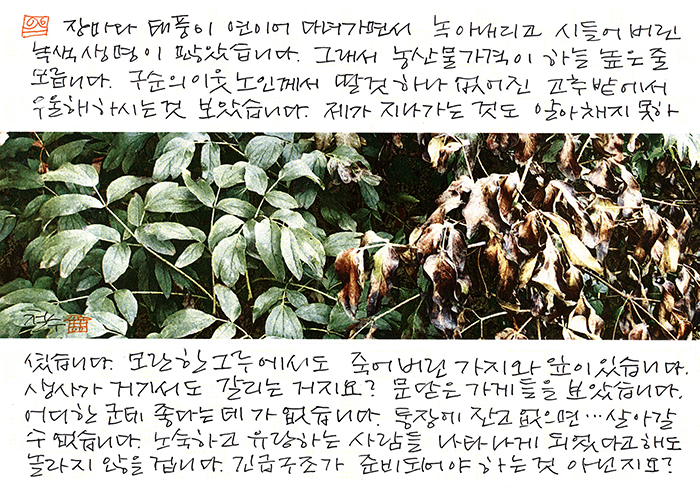 장마와 태풍이 연이어 다녀가면서 녹아내리고 시들어 버린
녹색 생명이 많았습니다. 그래서 농산물가격이 하늘 높은 줄
모릅니다. 구순의 이웃 노인께서 딸것 하나 없어진 고추밭에서
우울해 하시는 것 보았습니다. 제가 지나가는 것도 알아채지 못하
셨습니다. 모란 한 그루에서도 죽어버린 가지와 잎이 있습니다.
생사가 거기서도 갈리는 거지요? 문닫은 가게들을 보았습니다.
어디 한 군데 좋다는 데가 없습니다. 통장에 잔고 없으면… 살아갈
수 없습니다. 노숙하고 유랑하는 사람들 나타나게 되었다고 해도
놀라지 않을 겁니다. 긴급구조가 준비되어야 하는 것 아닌지요?